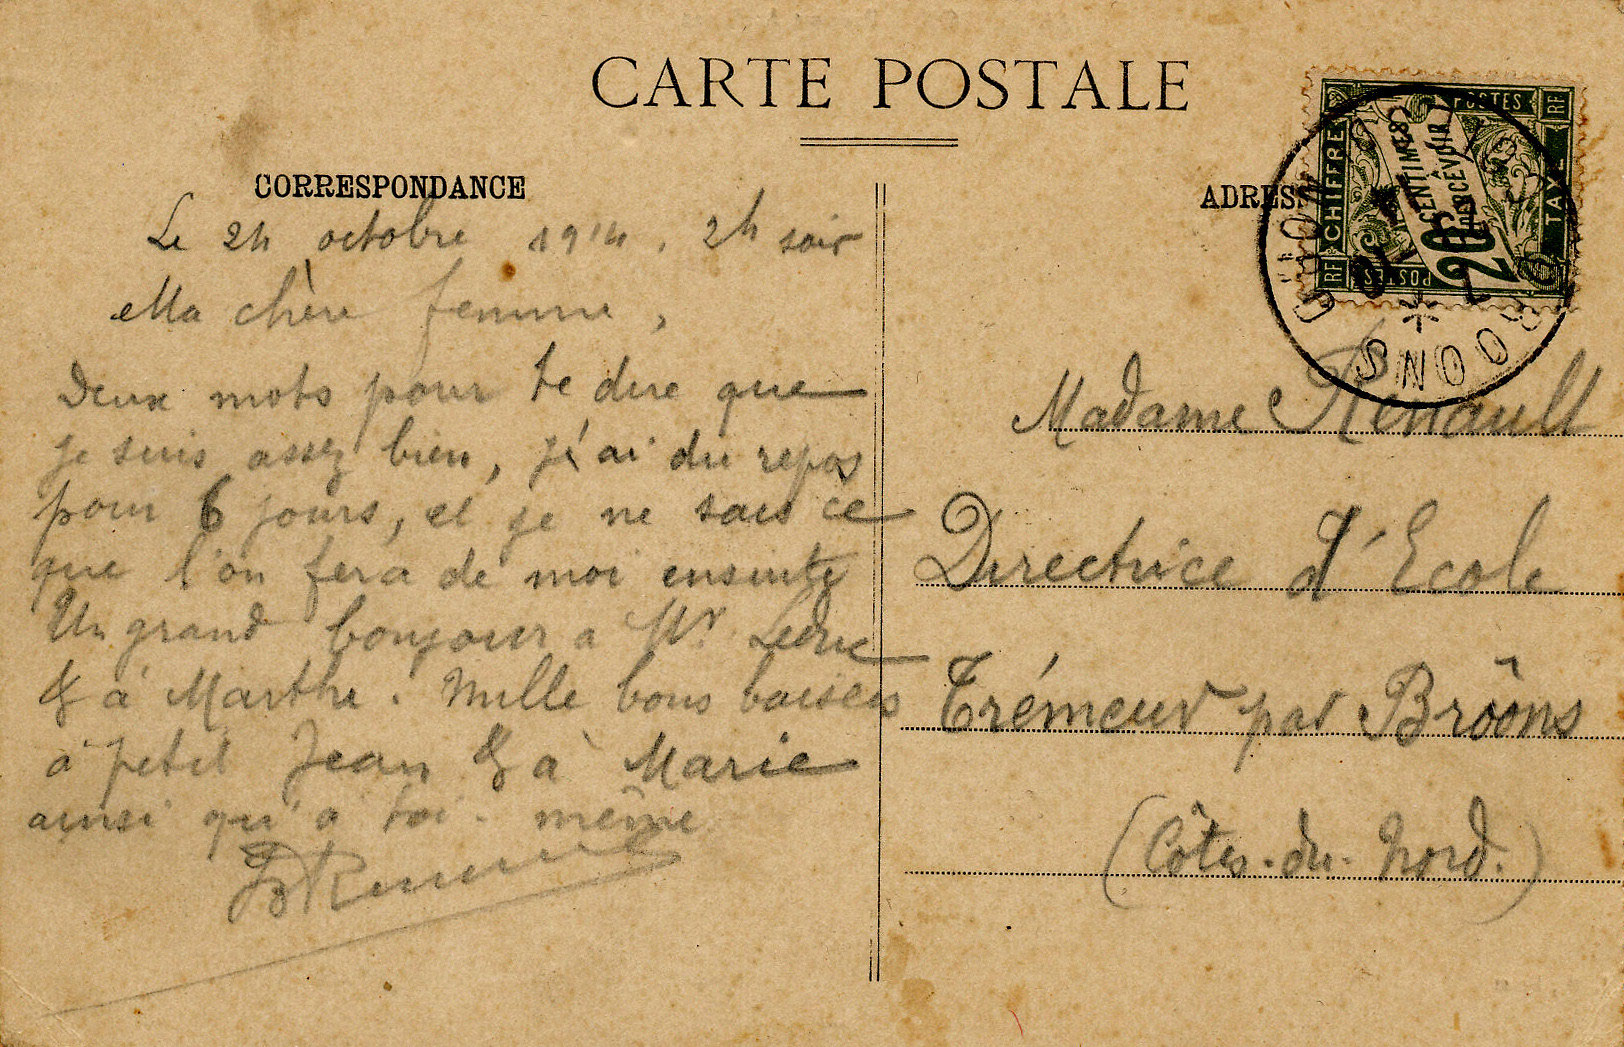 CARTE POSTALE
CORRESPONDANCE
Le 24 octobre 1914. 2h soir
Ma chère femme,
Deux mots pour te dire que
je suis assez bien, j'ai du repos
pour 6 jours, et je ne sais ce
que l'on fera de moi ensuite
Un grand bonjour à Mr Leduc
& à Marthe. Mille bons baisers
à petit Jean & à Marie
ainsi qu'à toi-même
ADRESS
CHIFFRE
TAXE
POSTES
POSTES
RF
RF
20
CENTIMES
À
PERCEVOIR
BROONS
Madame Renault
Directrice d'Ecole
Trémeur par Brôons
(Côtes-du-Nord.)